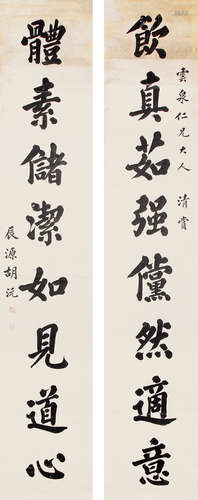 飲真茹强儻然適意
雲泉仁兄大人 清賞
體素儲潔如見道心
辰源胡沅